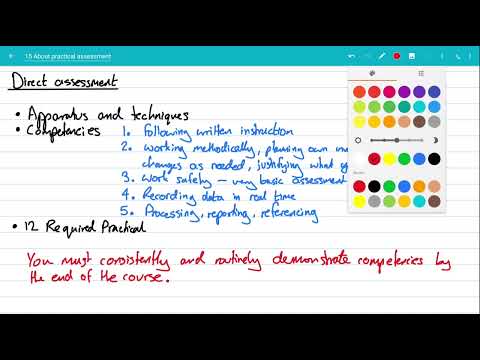 15 About practical assessment
Direct assessment
• Apparatus and techniques
• Competencies
1. Following written instruction
2. Working methodically, planning own
changes as needed, justifying what
3. Work safely – very basic assessment
4. Recording data in real time
5. Processing, reporting, referencing
• 12 Required Practical
You must consistently and routinely demonstrate competencies by
the end of the course.